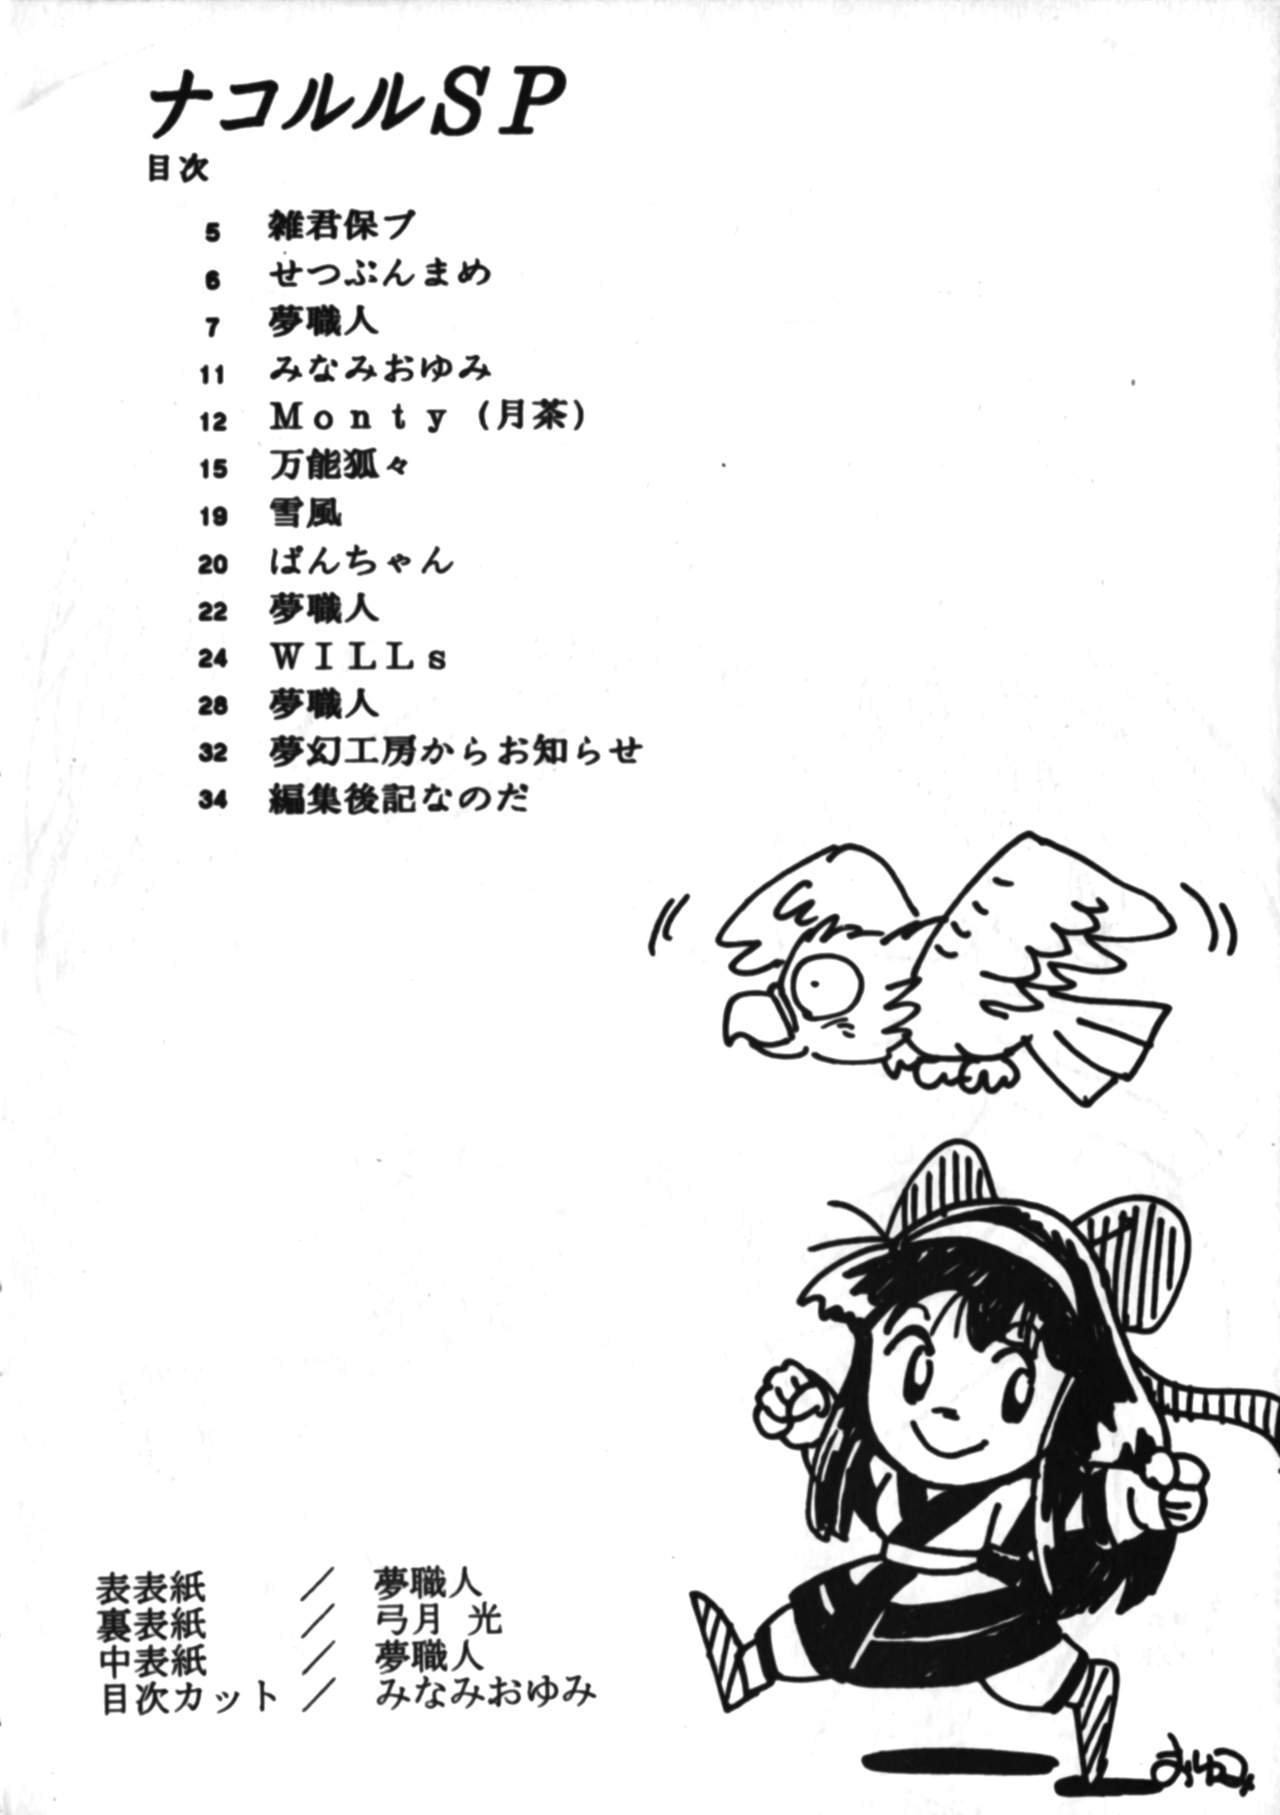 ナコルルＳＰ
目次
5 雑君保プ
6 せつぶんまめ
7 夢職人
11 みなみおゆみ
12 Ｍｏｎｔｙ（月茶）
15 万能狐々
19 雪風
20 ばんちゃん
22 夢職人
24 ＷＩＬＬｓ
28 夢職人
32 夢幻工房からお知らせ
34 編集後記なのだ
表表紙 ／ 夢職人
裏表紙 ／ 弓月 光
中表紙 ／ 夢職人
目次カット ／ みなみおゆみ